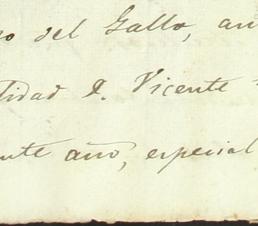 o del Gallo, an
tidad D. Vicente
ente año, especial